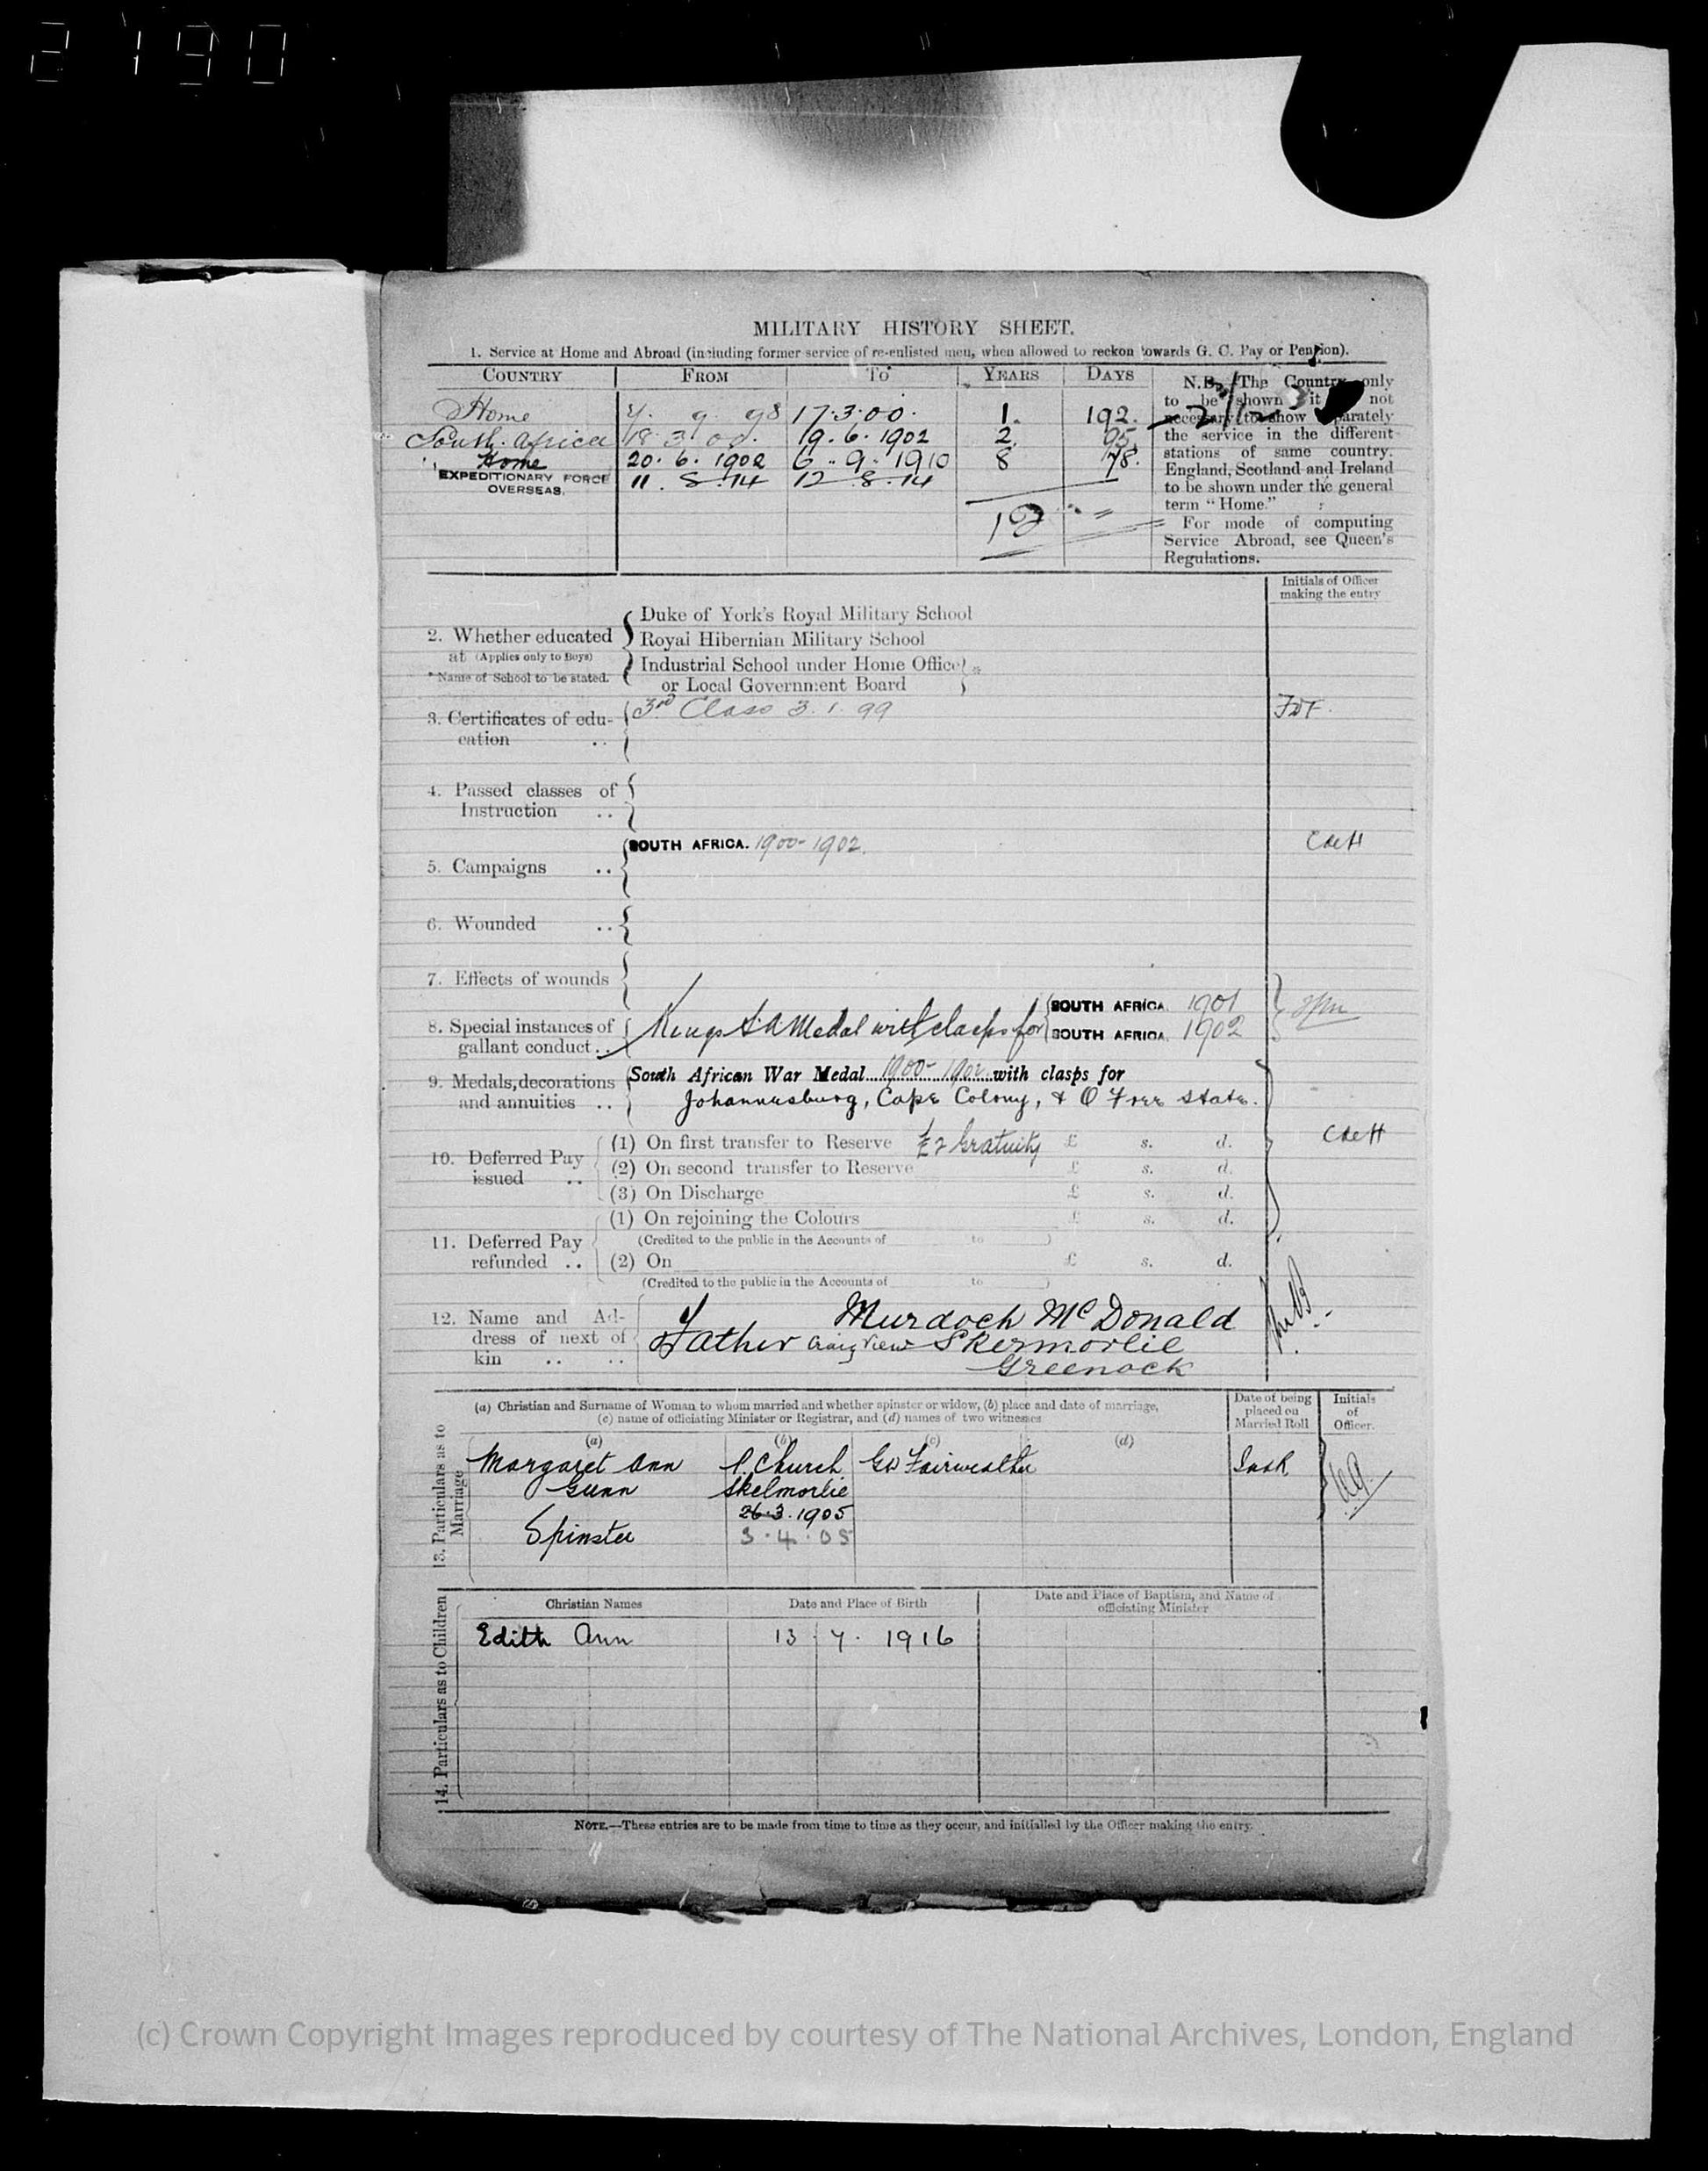 2190
MILITARY HISTORY SHEET.
1. Service at Home and Abroad (including former service of re-enlisted men, when allowed to reckon towards G. C. Pay or Pension).
COUNTRY FROM TO YEARS DAYS
Home 7. 9. 98 17.3.00. 1. 192.
South Africa 18.3.00. 19.6.1902 2. 95.
Home 20.6.1902 6.9.1910 8 78.
EXPEDITIONARY FORCE OVERSEAS. 11.8.14 12.8.14
12
N.B. The Country only
to be shown it not
necessary to show separately
the service in the different
stations of same country.
England, Scotland and Ireland
to be shown under the general
term "Home."
For mode of computing
Service Abroad, see Queen's
Regulations.
Initials of Officer
making the entry
2. Whether educated
at (Applies only to Boys)
*Name of School to be stated.
Duke of York's Royal Military School
Royal Hibernian Military School
Industrial School under Home Office
or Local Government Board
3. Certificates of edu-
cation ..
3rd Class 3.1.99
4. Passed classes of
Instruction ..
5. Campaigns ..
SOUTH AFRICA. 1900-1902.
6. Wounded ..
7. Effects of wounds
8. Special instances of
gallant conduct..
Kings S.A Medal with clasps for SOUTH AFRICA. 1901
SOUTH AFRICA. 1902
9. Medals, decorations
and annuities ..
South African War Medal 1900-1902 with clasps for
Johannesburg, Cape Colony, & O Free State.
10. Deferred Pay
issued ..
(1) On first transfer to Reserve £2 Gratuity £ s. d.
(2) On second transfer to Reserve £ s. d.
(3) On Discharge £ s. d.
11. Deferred Pay
refunded ..
(1) On rejoining the Colours £ s. d.
(Credited to the public in the Accounts of to )
(2) On £ s. d.
(Credited to the public in the Accounts of to )
12. Name and Ad-
dress of next of
kin .. ..
Murdoch McDonald
Father Craig View Skermorlie
Greenock
13. Particulars as to Marriage
(a) Christian and Surname of Woman to whom married and whether spinster or widow, (b) place and date of marriage,
(c) name of officiating Minister or Registrar, and (d) names of two witnesses
Date of being
placed on
Married Roll
Initials
of
Officer.
(a) (b) (c) (d)
Margaret Ann P. Church Gw Fairweather
Gunn Skelmorlie
26.3.1905
Spinster 3.4.05
14. Particulars as to Children
Christian Names Date and Place of Birth Date and Place of Baptism, and Name of
officiating Minister
Edith Ann 13.7.1916
NOTE.—These entries are to be made from time to time as they occur, and initialled by the Officer making the entry.
(c) Crown Copyright Images reproduced by courtesy of The National Archives, London, England